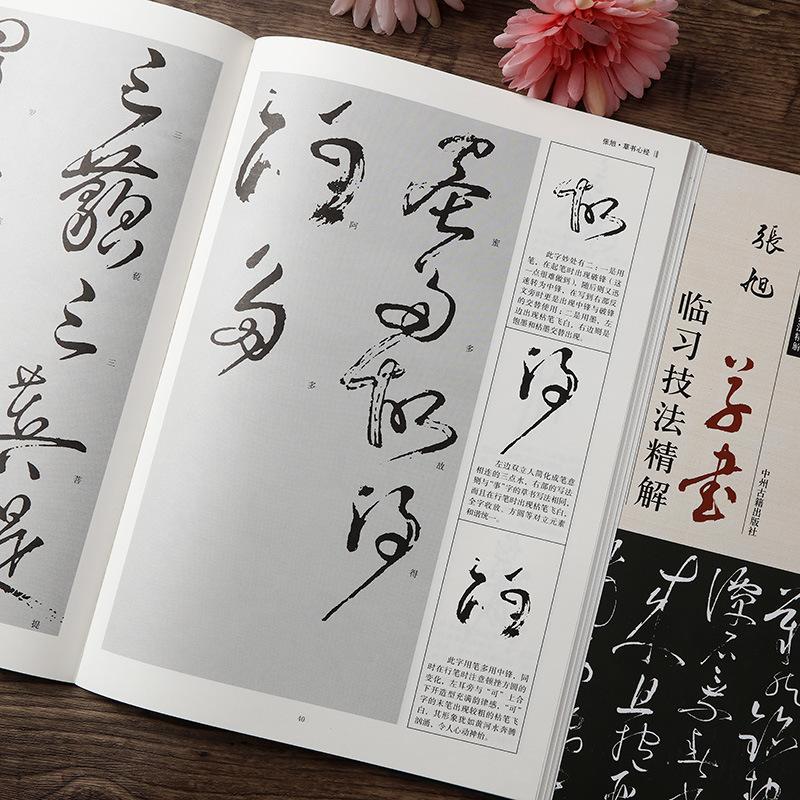 三
藐
三
菩
提
张旭·草书心经
蜜
多
故
得
阿
多
此字妙处有二：一是用
笔，在起笔时出现破锋（这
一点很难做到），随后则又迅
速转为中锋，在写到右部反
文旁时更是出现中锋与破锋
的交替使用；二是用墨，左
边出现枯笔飞白，右边则是
饱墨和枯墨交替出现。
左边双立人简化成笔意
相连的三点水，右部的写法
则与“事”字的草书写法相同，
而且在行笔时出现枯笔飞白，
全字收放、方圆等对立元素
和谐统一。
此字用笔多用中锋，同
时在行笔时注意顿挫方圆的
变化，左耳旁与“可”上合
下开造型充满韵律感，“可”
字的末笔出现较粗的枯笔飞
白，其形象犹如黄河水奔腾
汹涌，令人心动神怡。
40
張旭
草書
临习技法精解
中州古籍出版社